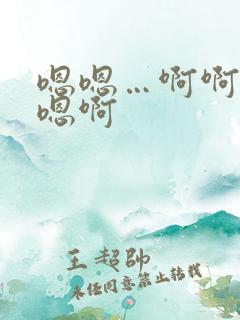 嗯嗯...啊啊
嗯啊
王超帅
未经同意禁止转载